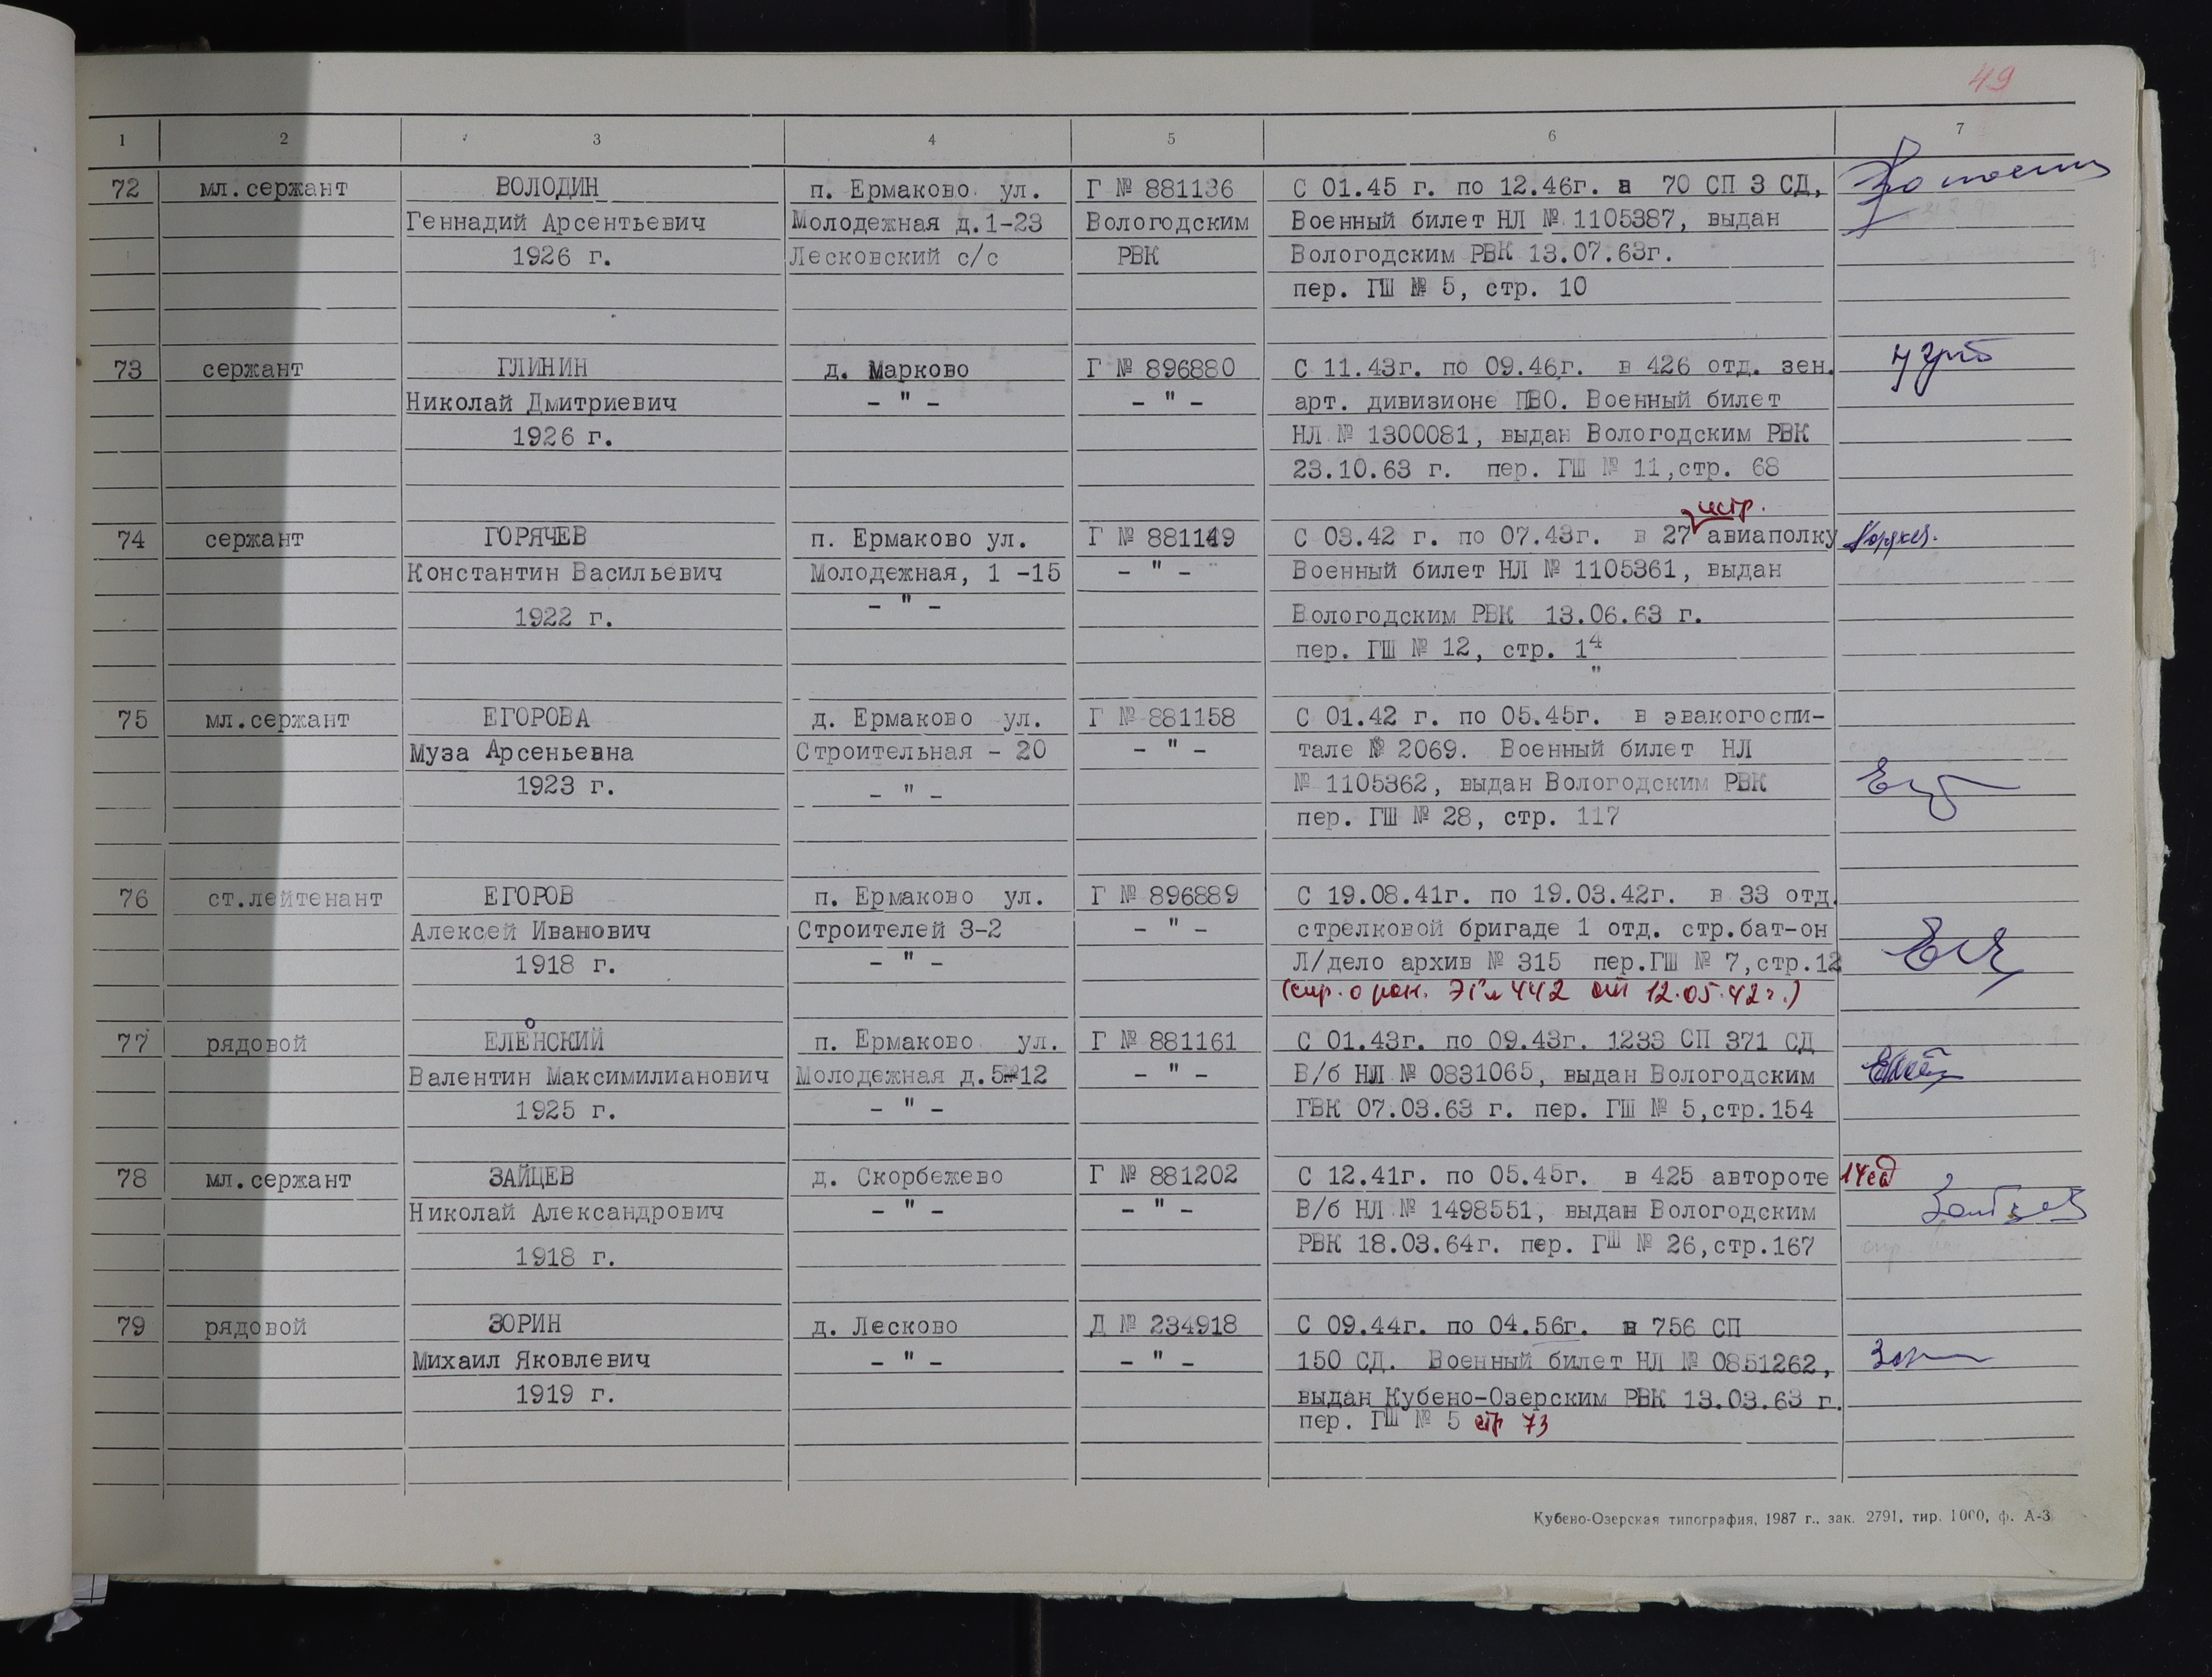 49
1 2 3 4 5 6 7
72 мл.сержант ВОЛОДИН п. Ермаково ул. Г № 881136 С 01.45 г. по 12.46г. в 70 СП 3 СД,
Геннадий Арсентьевич Молодежная д.1-23 Вологодским Военный билет НЛ № 1105387, выдан
1926 г. Лесковский с/с РВК Вологодским РВК 13.07.63г.
пер. ГШ № 5, стр. 10
73 сержант ГЛИНИН д. Марково Г № 896880 С 11.43г. по 09.46г. в 426 отд. зен.
Николай Дмитриевич - " - - " - арт. дивизионе ПВО. Военный билет
1926 г. НЛ № 1300081, выдан Вологодским РВК
23.10.63 г. пер. ГШ № 11,стр. 68
истр.
74 сержант ГОРЯЧЕВ п. Ермаково ул. Г № 881149 С 03.42 г. по 07.43г. в 27 авиаполку
Константин Васильевич Молодежная, 1 -15 - " - Военный билет НЛ № 1105361, выдан
1922 г. - " - Вологодским РВК 13.06.63 г.
пер. ГШ № 12, стр. 14
"
75 мл.сержант ЕГОРОВА д. Ермаково ул. Г № 881158 С 01.42 г. по 05.45г. в эвакогоспи-
Муза Арсеньевна Строительная - 20 - " - тале № 2069. Военный билет НЛ
1923 г. - " - № 1105362, выдан Вологодским РВК
пер. ГШ № 28, стр. 117
76 ст.лейтенант ЕГОРОВ п. Ермаково ул. Г № 896889 С 19.08.41г. по 19.03.42г. в 33 отд.
Алексей Иванович Строителей 3-2 - " - стрелковой бригаде 1 отд. стр.бат-он
1918 г. - " - Л/дело архив № 315 пер.ГШ № 7,стр.12
(спр. о ран. ЭГ № 442 от 12.05.42г.)
о
77 рядовой ЕЛЕНСКИЙ п. Ермаково ул. Г № 881161 С 01.43г. по 09.43г. 1233 СП 371 СД
Валентин Максимилианович Молодежная д.5-12 - " - В/б НЛ № 0831065, выдан Вологодским
1925 г. - " - ГВК 07.03.63 г. пер. ГШ № 5,стр.154
78 мл.сержант ЗАЙЦЕВ д. Скорбежево Г № 881202 С 12.41г. по 05.45г. в 425 автороте 14 сд
Николай Александрович - " - - " - В/б НЛ № 1498551, выдан Вологодским
1918 г. РВК 18.03.64г. пер. ГШ № 26,стр.167
79 рядовой ЗОРИН д. Лесково Д № 234918 С 09.44г. по 04.56г. в 756 СП
Михаил Яковлевич - " - - " - 150 СД. Военный билет НЛ № 0851262,
1919 г. выдан Кубено-Озерским РВК 13.03.63 г.
пер. ГШ № 5 стр 73
Кубено-Озерская типография, 1987 г., зак. 2791, тир. 1000, ф. А-3